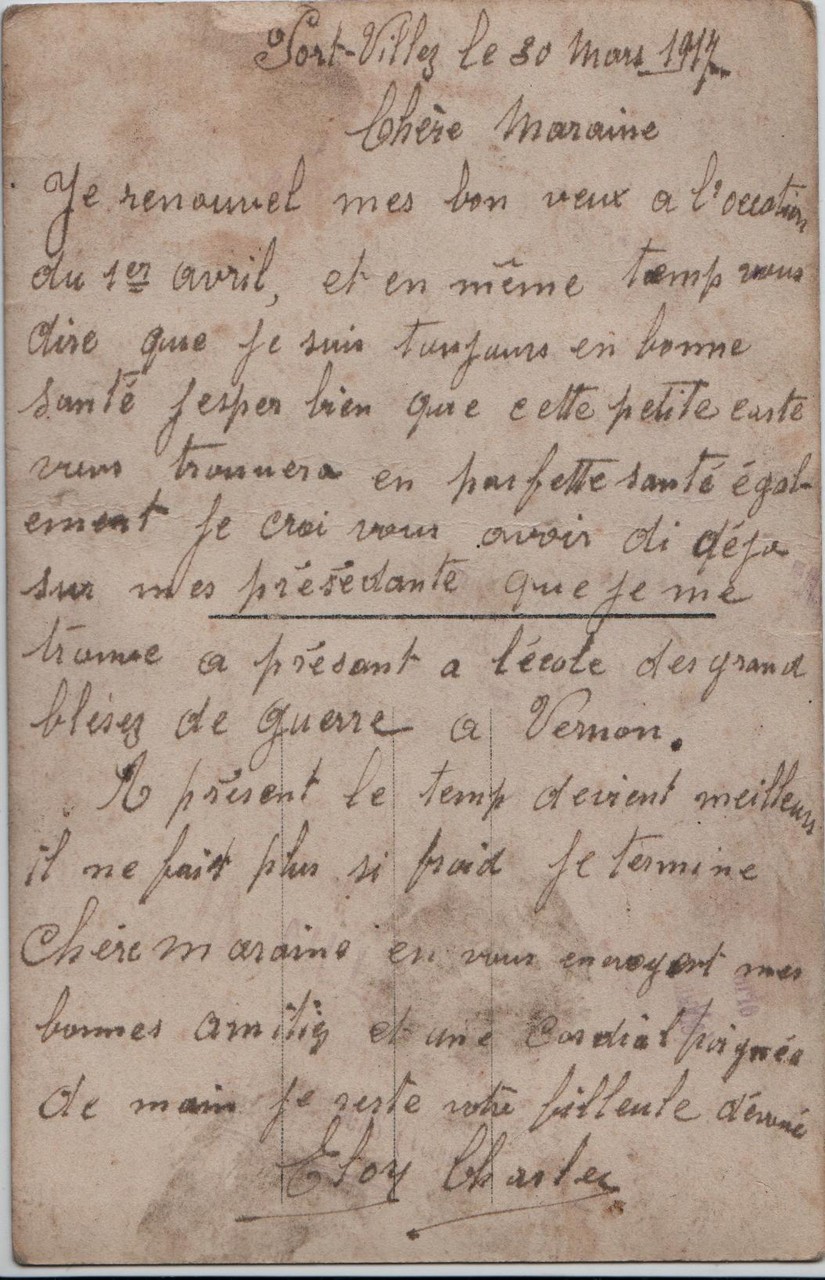 Port-Villez le 30 Mars 1917
Chère Maraine
Je renouvel mes bon veux a l'occation
du 1er avril, et en même temp vous
dire que je suis toujours en bonne
santé j'esper bien que cette petite carte
vous trouvera en parfette santé égal-
ement je croi vous avoir di déja
sur mes présédante que je me
trouve a présant a l'école des grand
blésez de guerre a Vernon.
A présent le temp devient meilleur
il ne fait plus si froid je termine
Chère maraine en vous envoyant mes
bonnes amitiez et une cordial poignée
de main je reste votre filleule dévoué
Eloy Charles